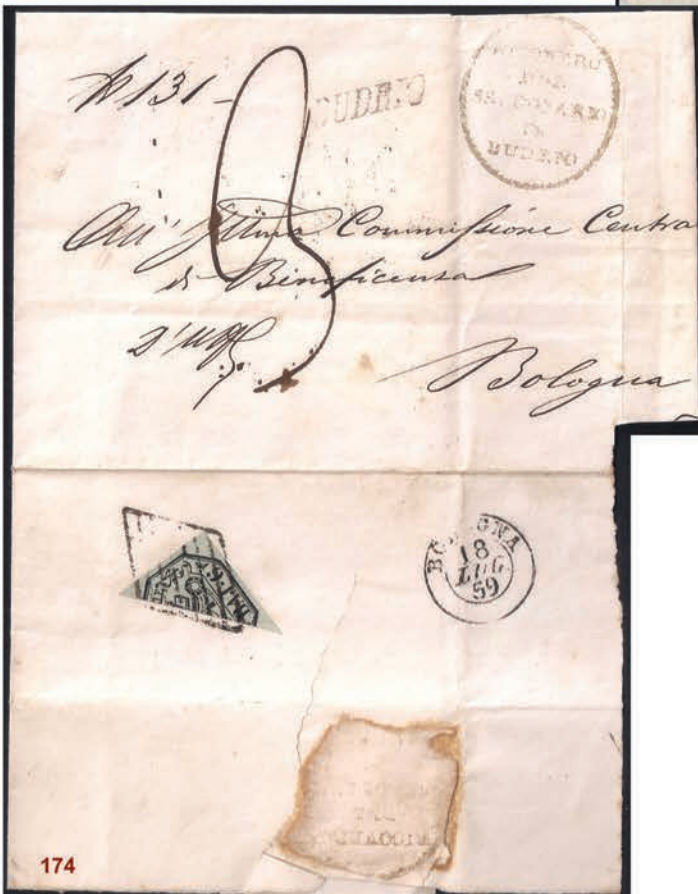 N 131 -
BUDRIO
RICOVERO
DEL
SS. ROSARIO
IN
BUDRIO
All' Illma Commissione Centra
di Beneficenza
3
D'Uffo
Bologna
BOLOGNA
18
LUG
59
174